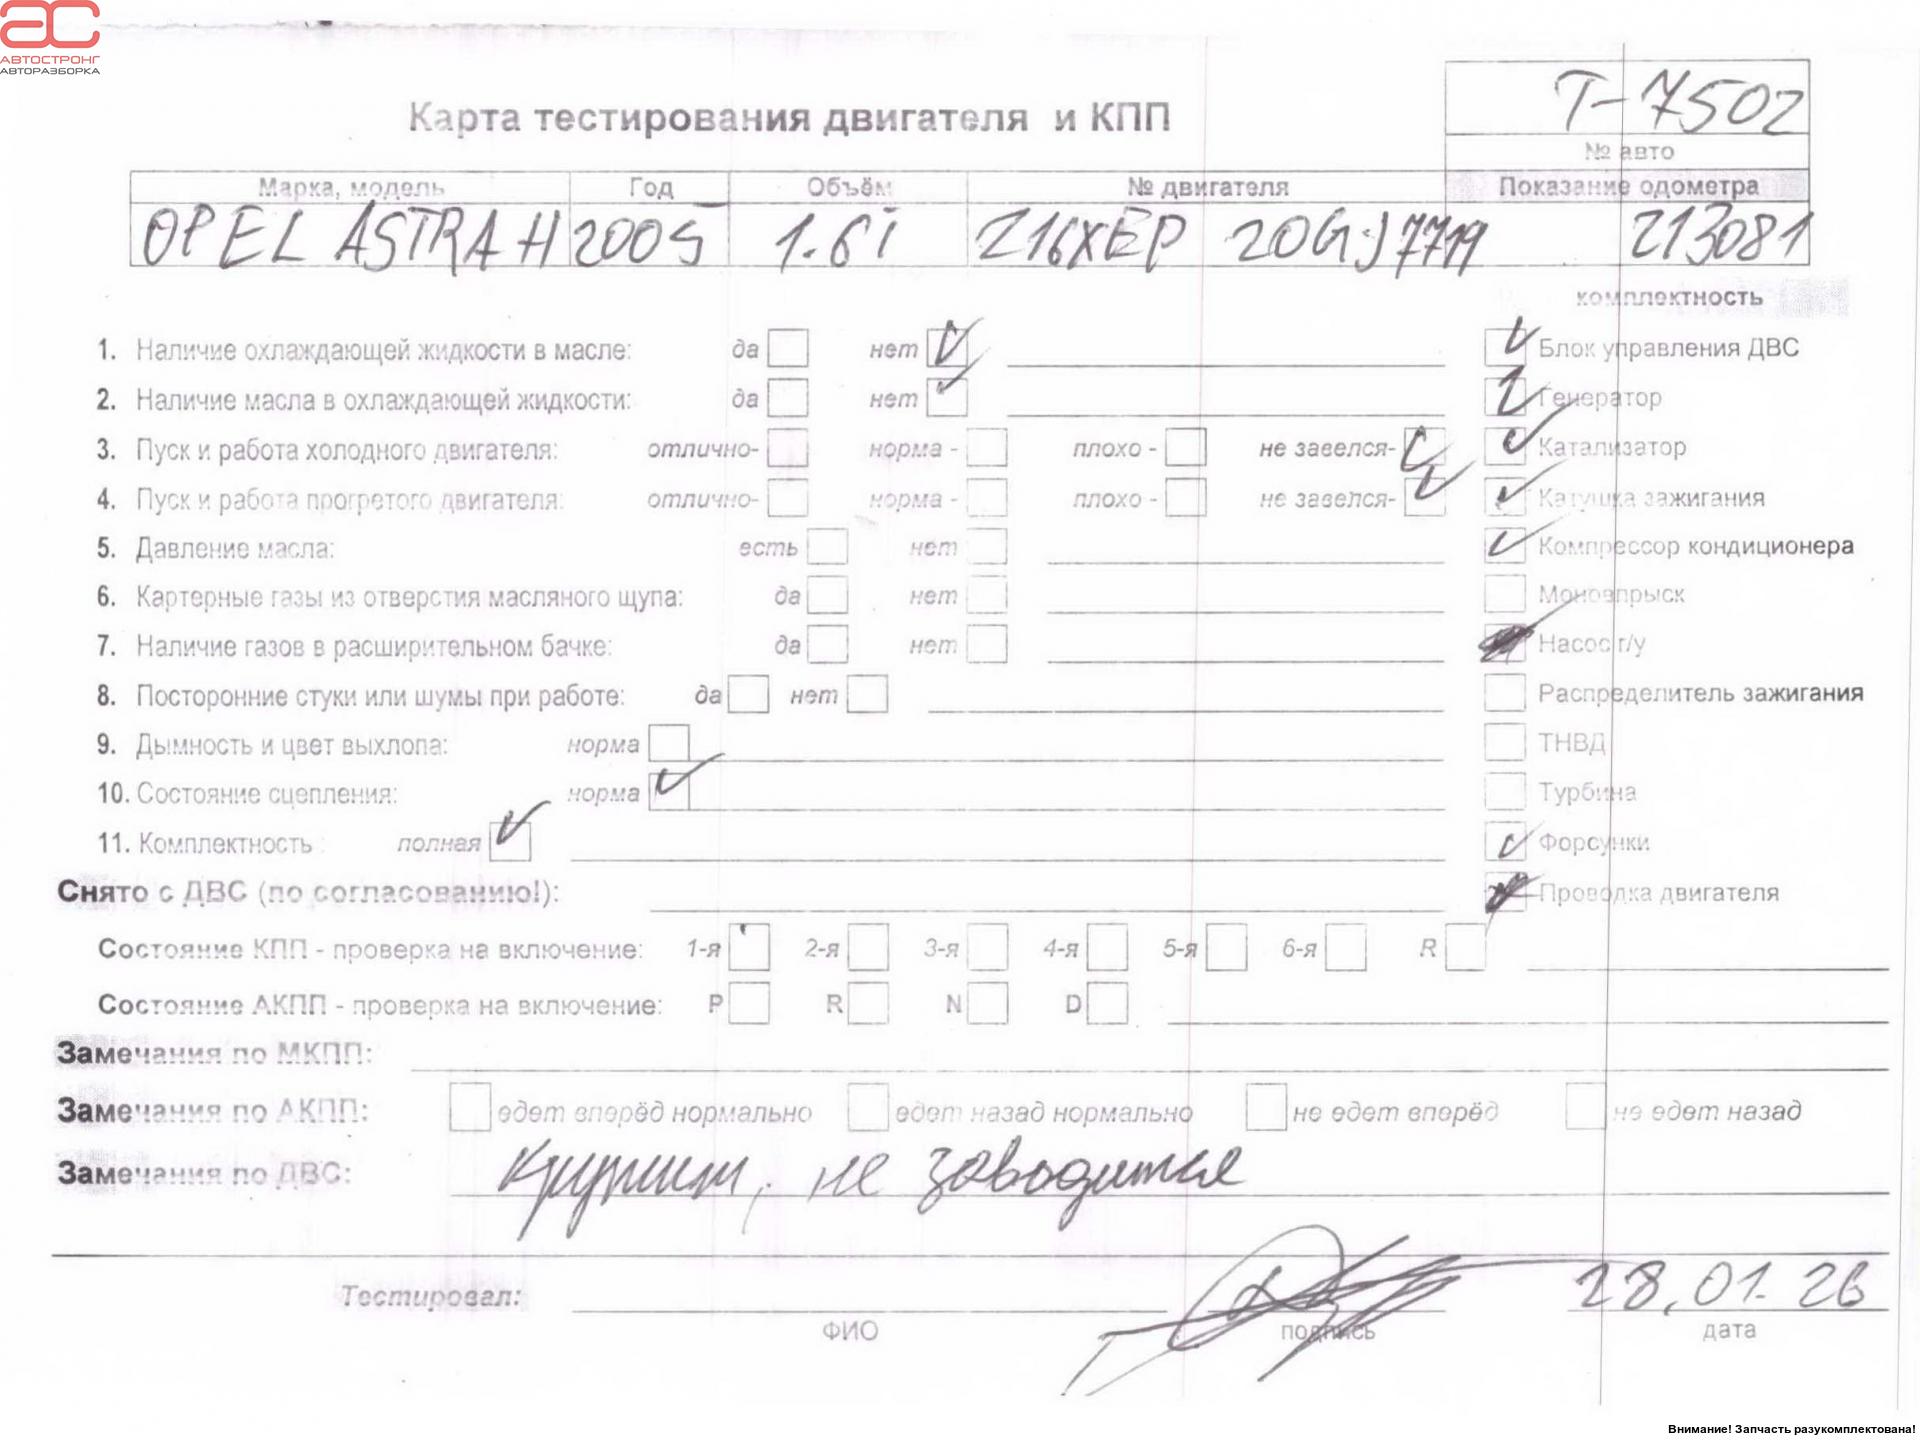 АС
АВТОСТРОНГ
АВТОРАЗБОРКА
Т-7502
Карта тестирования двигателя и КПП
№ авто
Марка, модель Год Объём № двигателя Показание одометра
OPEL ASTRA H 2005 1.6i Z16XEP 20GJ7719 213081
комплектность
1. Наличие охлаждающей жидкости в масле: да нет Блок управления ДВС
2. Наличие масла в охлаждающей жидкости: да нет Генератор
3. Пуск и работа холодного двигателя: отлично- норма - плохо - не завелся- Катализатор
4. Пуск и работа прогретого двигателя: отлично- норма - плохо - не завелся- Катушка зажигания
5. Давление масла: есть нет Компрессор кондиционера
6. Картерные газы из отверстия масляного щупа: да нет Моновпрыск
7. Наличие газов в расширительном бачке: да нет Насос г/у
8. Посторонние стуки или шумы при работе: да нет Распределитель зажигания
9. Дымность и цвет выхлопа: норма ТНВД
10. Состояние сцепления: норма Турбина
11. Комплектность : полная Форсунки
Снято с ДВС (по согласованию!): Проводка двигателя
Состояние КПП - проверка на включение: 1-я 2-я 3-я 4-я 5-я 6-я R
Состояние АКПП - проверка на включение: P R N D
Замечания по МКПП:
Замечания по АКПП: едет вперёд нормально едет назад нормально не едет вперёд не едет назад
Замечания по ДВС: крутит, не заводится
Тестировал: 28.01.26
ФИО подпись дата
Внимание! Запчасть разукомплектована!